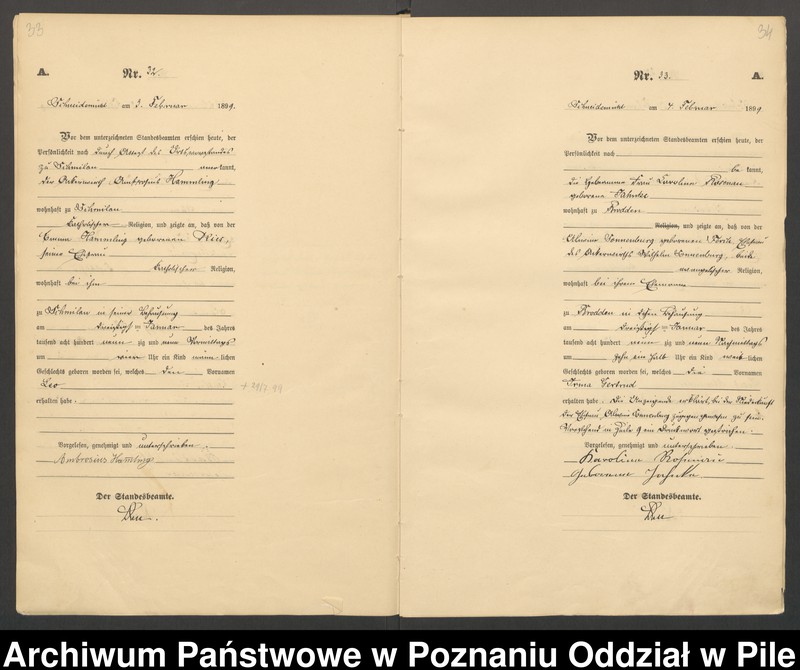 33
A.
Nr. 32.
Schneidemühl am 3. Februar 1899.
Vor dem unterzeichneten Standesbeamten erschien heute, der
Persönlichkeit nach durch Attest des Ortsvorstandes
zu Schmilau anerkannt,
der Ackerwirth Ambrosius Hammling
wohnhaft zu Schmilau
katholischer Religion, und zeigte an, daß von der
Emma Hammling geborenen
seiner Ehefrau
katholischer Religion,
wohnhaft bei ihm
zu Schmilau in seiner Behausung
am dreißigsten Januar des Jahres
tausend acht hundert neunzig und neun Vormittags
um vier Uhr ein Kind männlichen
Geschlechts geboren worden sei, welches den Vornamen
Leo
erhalten habe.
Vorgelesen, genehmigt und unterschrieben.
Ambrosius Hamling
Der Standesbeamte.
34
Nr. 33.
A.
Schneidemühl am 4. Februar 1899
Vor dem unterzeichneten Standesbeamten erschien heute, der
Persönlichkeit nach
bekannt,
die Hebamme Frau Karoline
geborene
wohnhaft zu Brodden
Religion, und zeigte an, daß von der
Sonnenburg geborenen Ehefrau
des Ackerwirths Wilhelm Sonnenburg, beide
evangelischer Religion,
wohnhaft bei ihrem Ehemanne
zu Brodden in Behausung
am dreißigsten Januar des Jahres
tausend acht hundert neunzig und neun Nachmittags
um zehn ein halb Uhr ein Kind weiblichen
Geschlechts geboren worden sei, welches die Vornamen
Irma Gertrud
erhalten habe. Die Anzeigende erklärt, bei der Niederkunft
der Sonnenburg zugegen gewesen zu sein.
Vorstehend in Zeile 9 ein Druckwort gestrichen.
Vorgelesen, genehmigt und unterschrieben.
Karoline
geborene
Der Standesbeamte.
Archiwum Państwowe w Poznaniu Oddział w Pile